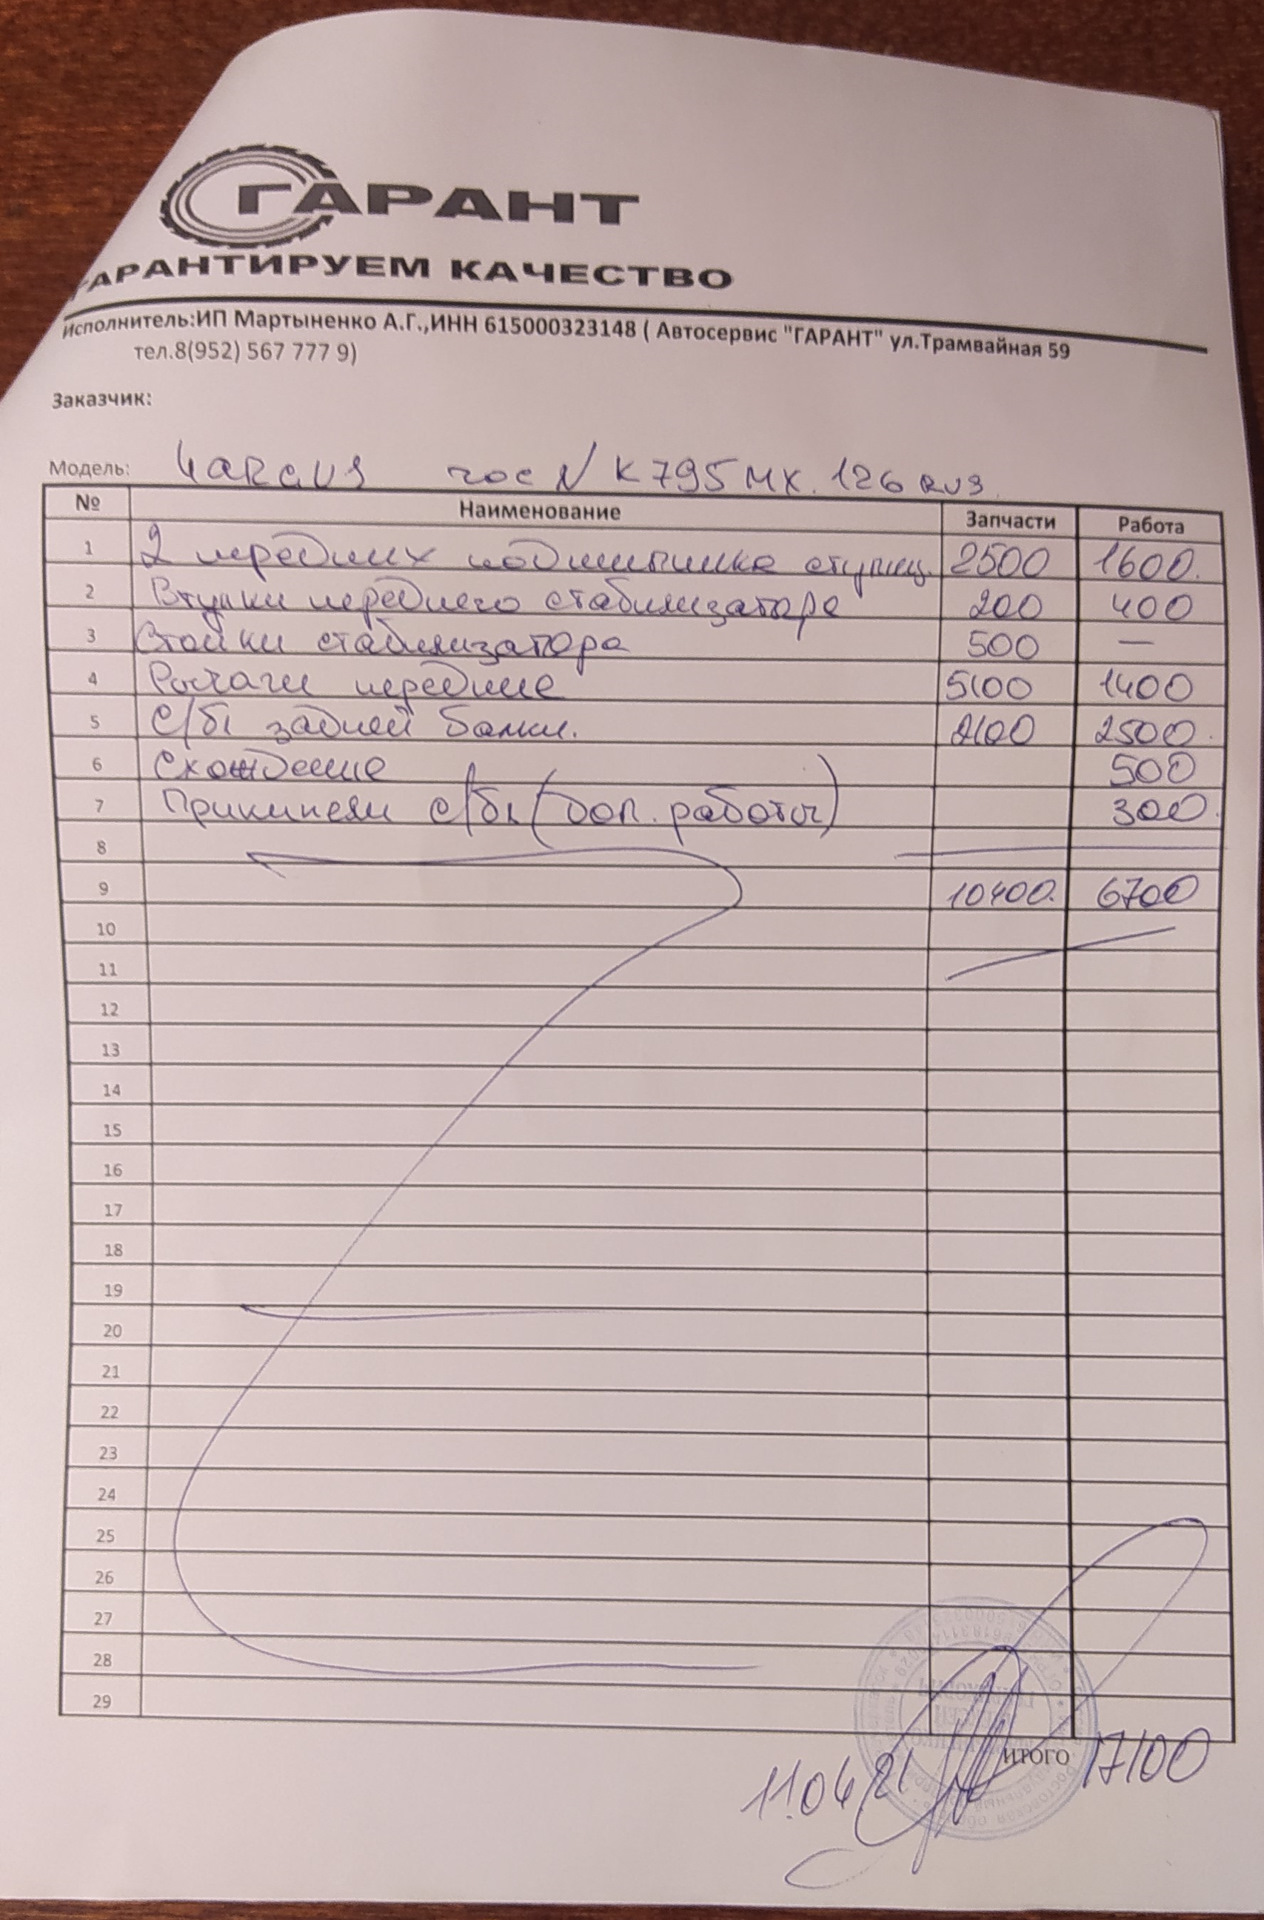 ГАРАНТ
ГАРАНТИРУЕМ КАЧЕСТВО
Исполнитель:ИП Мартыненко А.Г.,ИНН 615000323148 ( Автосервис "ГАРАНТ" ул.Трамвайная 59
тел.8(952) 567 777 9)
Заказчик:
Модель: Largus гос N К 795 МХ. 126 RUS.
№ Наименование Запчасти Работа
1 2 передних подшипника ступиц. 2500 1600.
2 Втулки переднего стабилизатора 200 400
3 Стойки стабилизатора 500 —
4 Рычаги передние 5100 1400
5 С/бл задней балки. 2100 2500.
6 Схождение 500
7 Прикипели с/бл (доп. работы) 300.
8
9 10400. 6700
10
11
12
13
14
15
16
17
18
19
20
21
22
23
24
25
26
27
28
29
ИТОГО 17100
11.04.21